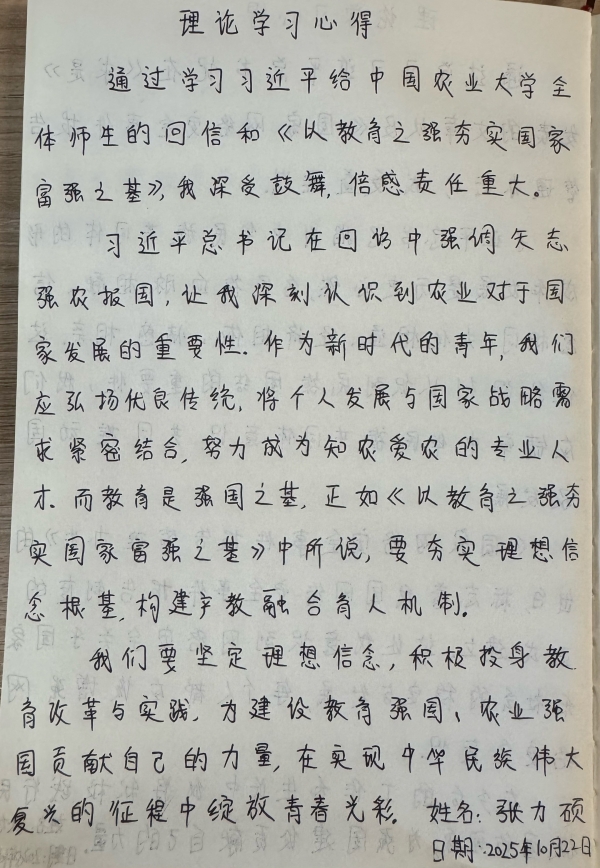 理论学习心得
通过学习习近平给中国农业大学全
体师生的回信和《以教育之强夯实国家
富强之基》,我深受鼓舞,倍感责任重大。
习近平总书记在回信中强调矢志
强农报国,让我深刻认识到农业对于国
家发展的重要性.作为新时代的青年,我们
应弘扬优良传统,将个人发展与国家战略需
求紧密结合,努力成为知农爱农的专业人
才.而教育是强国之基,正如《以教育之强夯
实国家富强之基》中所说,要夯实理想信
念根基,构建产教融合育人机制。
我们要坚定理想信念,积极投身教
育改革与实践,为建设教育强国、农业强
国贡献自己的力量,在实现中华民族伟大
复兴的征程中绽放青春光彩。 姓名:张力硕
日期:2025年10月22日